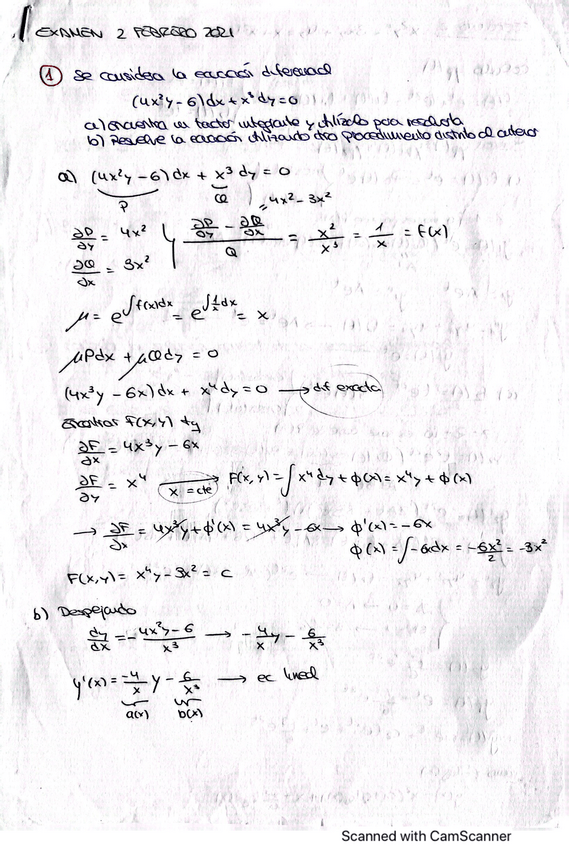 EXAMEN 2 FEBRERO 2021
① Se considera la ecuación diferencial
(4x²y-6)dx+x³dy=0
a) encuentra un factor integrante y utilízalo para resolverla
b) Resuelve la ecuación utilizando otro procedimiento distinto al anterior
a) (4x²y-6)dx + x³dy = 0
P Q = 4x² - 3x²
∂P/∂y = 4x² (∂P/∂y - ∂Q/∂x)/Q = x²/x³ = 1/x = f(x)
∂Q/∂x = 3x²
μ = e^∫f(x)dx = e^∫1/x dx = x
μPdx + μQdy = 0
(4x³y - 6x)dx + x⁴dy = 0 → dif exacta
encontrar F(x,y) tq
∂F/∂x = 4x³y - 6x
∂F/∂y = x⁴ x = cte → F(x,y) = ∫x⁴dy + ϕ(x) = x⁴y + ϕ(x)
→ ∂F/∂x = 4x³y + ϕ'(x) = 4x³y - 6x → ϕ'(x) = -6x
ϕ(x) = ∫-6xdx = -6x²/2 = -3x²
F(x,y) = x⁴y - 3x² = c
b) Despejando
dy/dx = -4x²y-6/x³ → -4/x y - 6/x³
y'(x) = -4/x y - 6/x³ → ec lineal
a(x) b(x)
Scanned with CamScanner